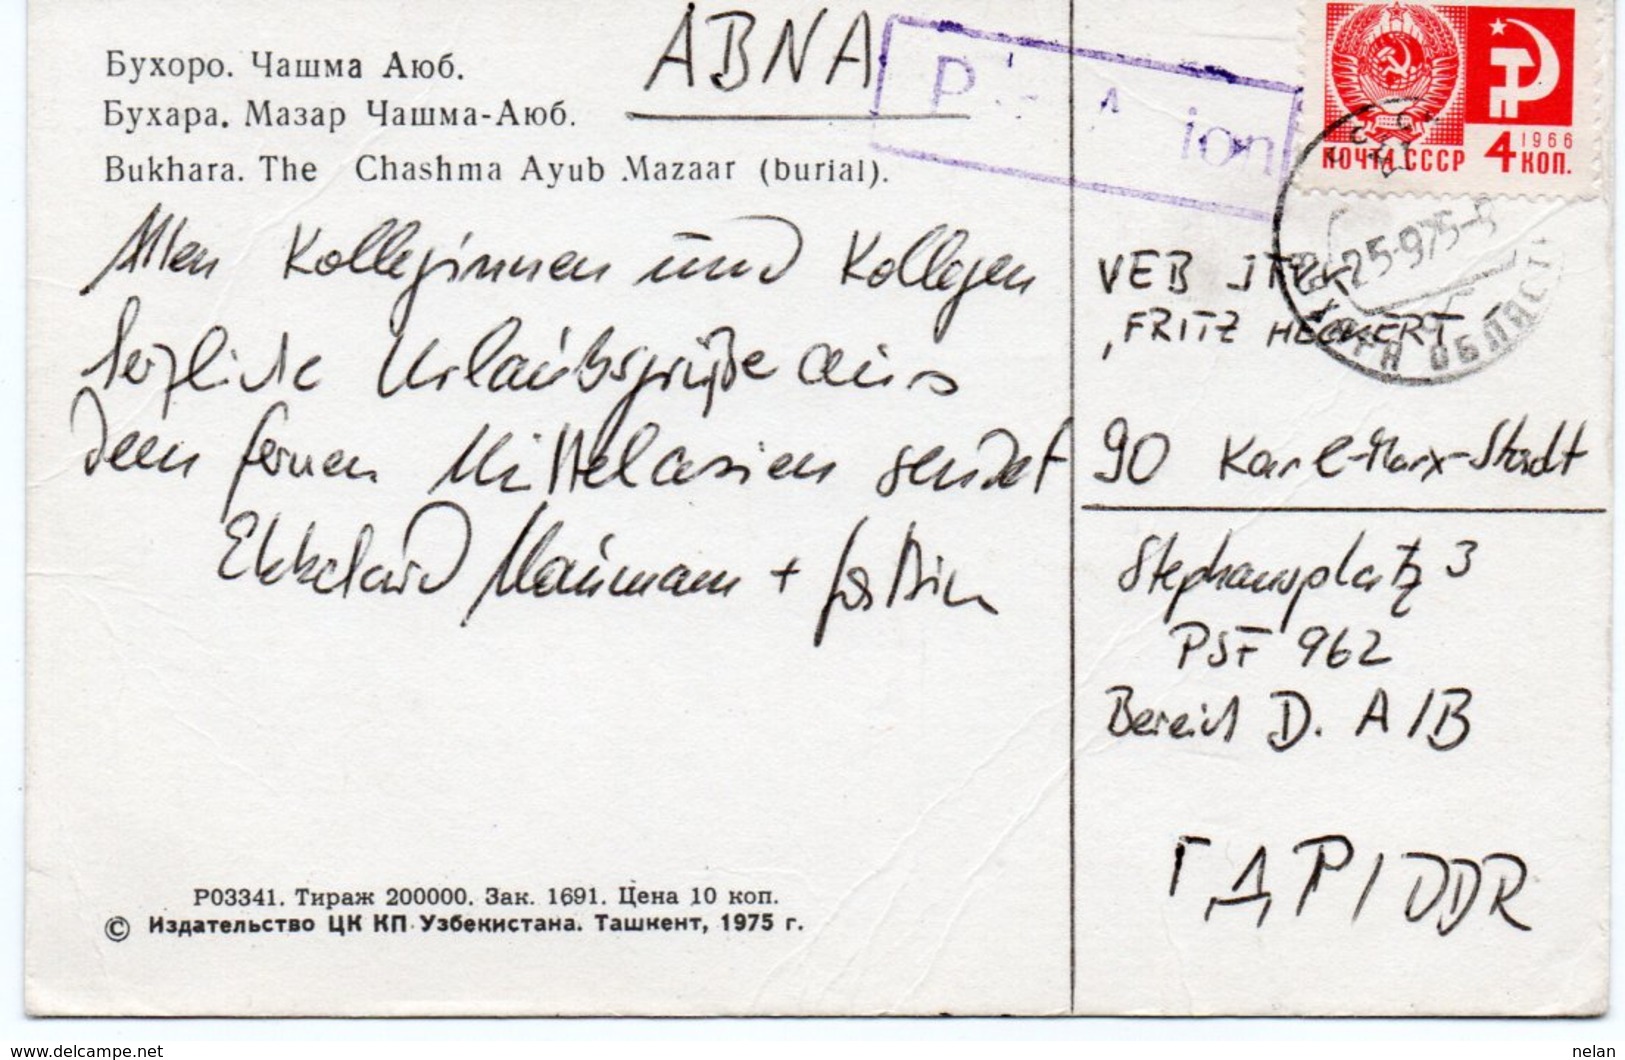 Бухоро. Чашма Аюб.
Бухара. Мазар Чашма-Аюб.
Bukhara. The Chashma Ayub Mazaar (burial).
ABNA
ПОЧТА СССР
1966
4 КОП.
25-975
БУХАРСК ОБЛАСТ
Allen Kolleginnen und Kollegen
herzliche Urlaubsgrüße aus
dem fernen Mittelasien sendet
Ekkehard Naumann +
VEB
"FRITZ HECKERT"
90 Karl-Marx-Stadt
Stephansplatz 3
PSF 962
Bereich D. A/B
ГДР/DDR
Р03341. Тираж 200000. Зак. 1691. Цена 10 коп.
© Издательство ЦК КП Узбекистана. Ташкент, 1975 г.
www.delcampe.net
nelan